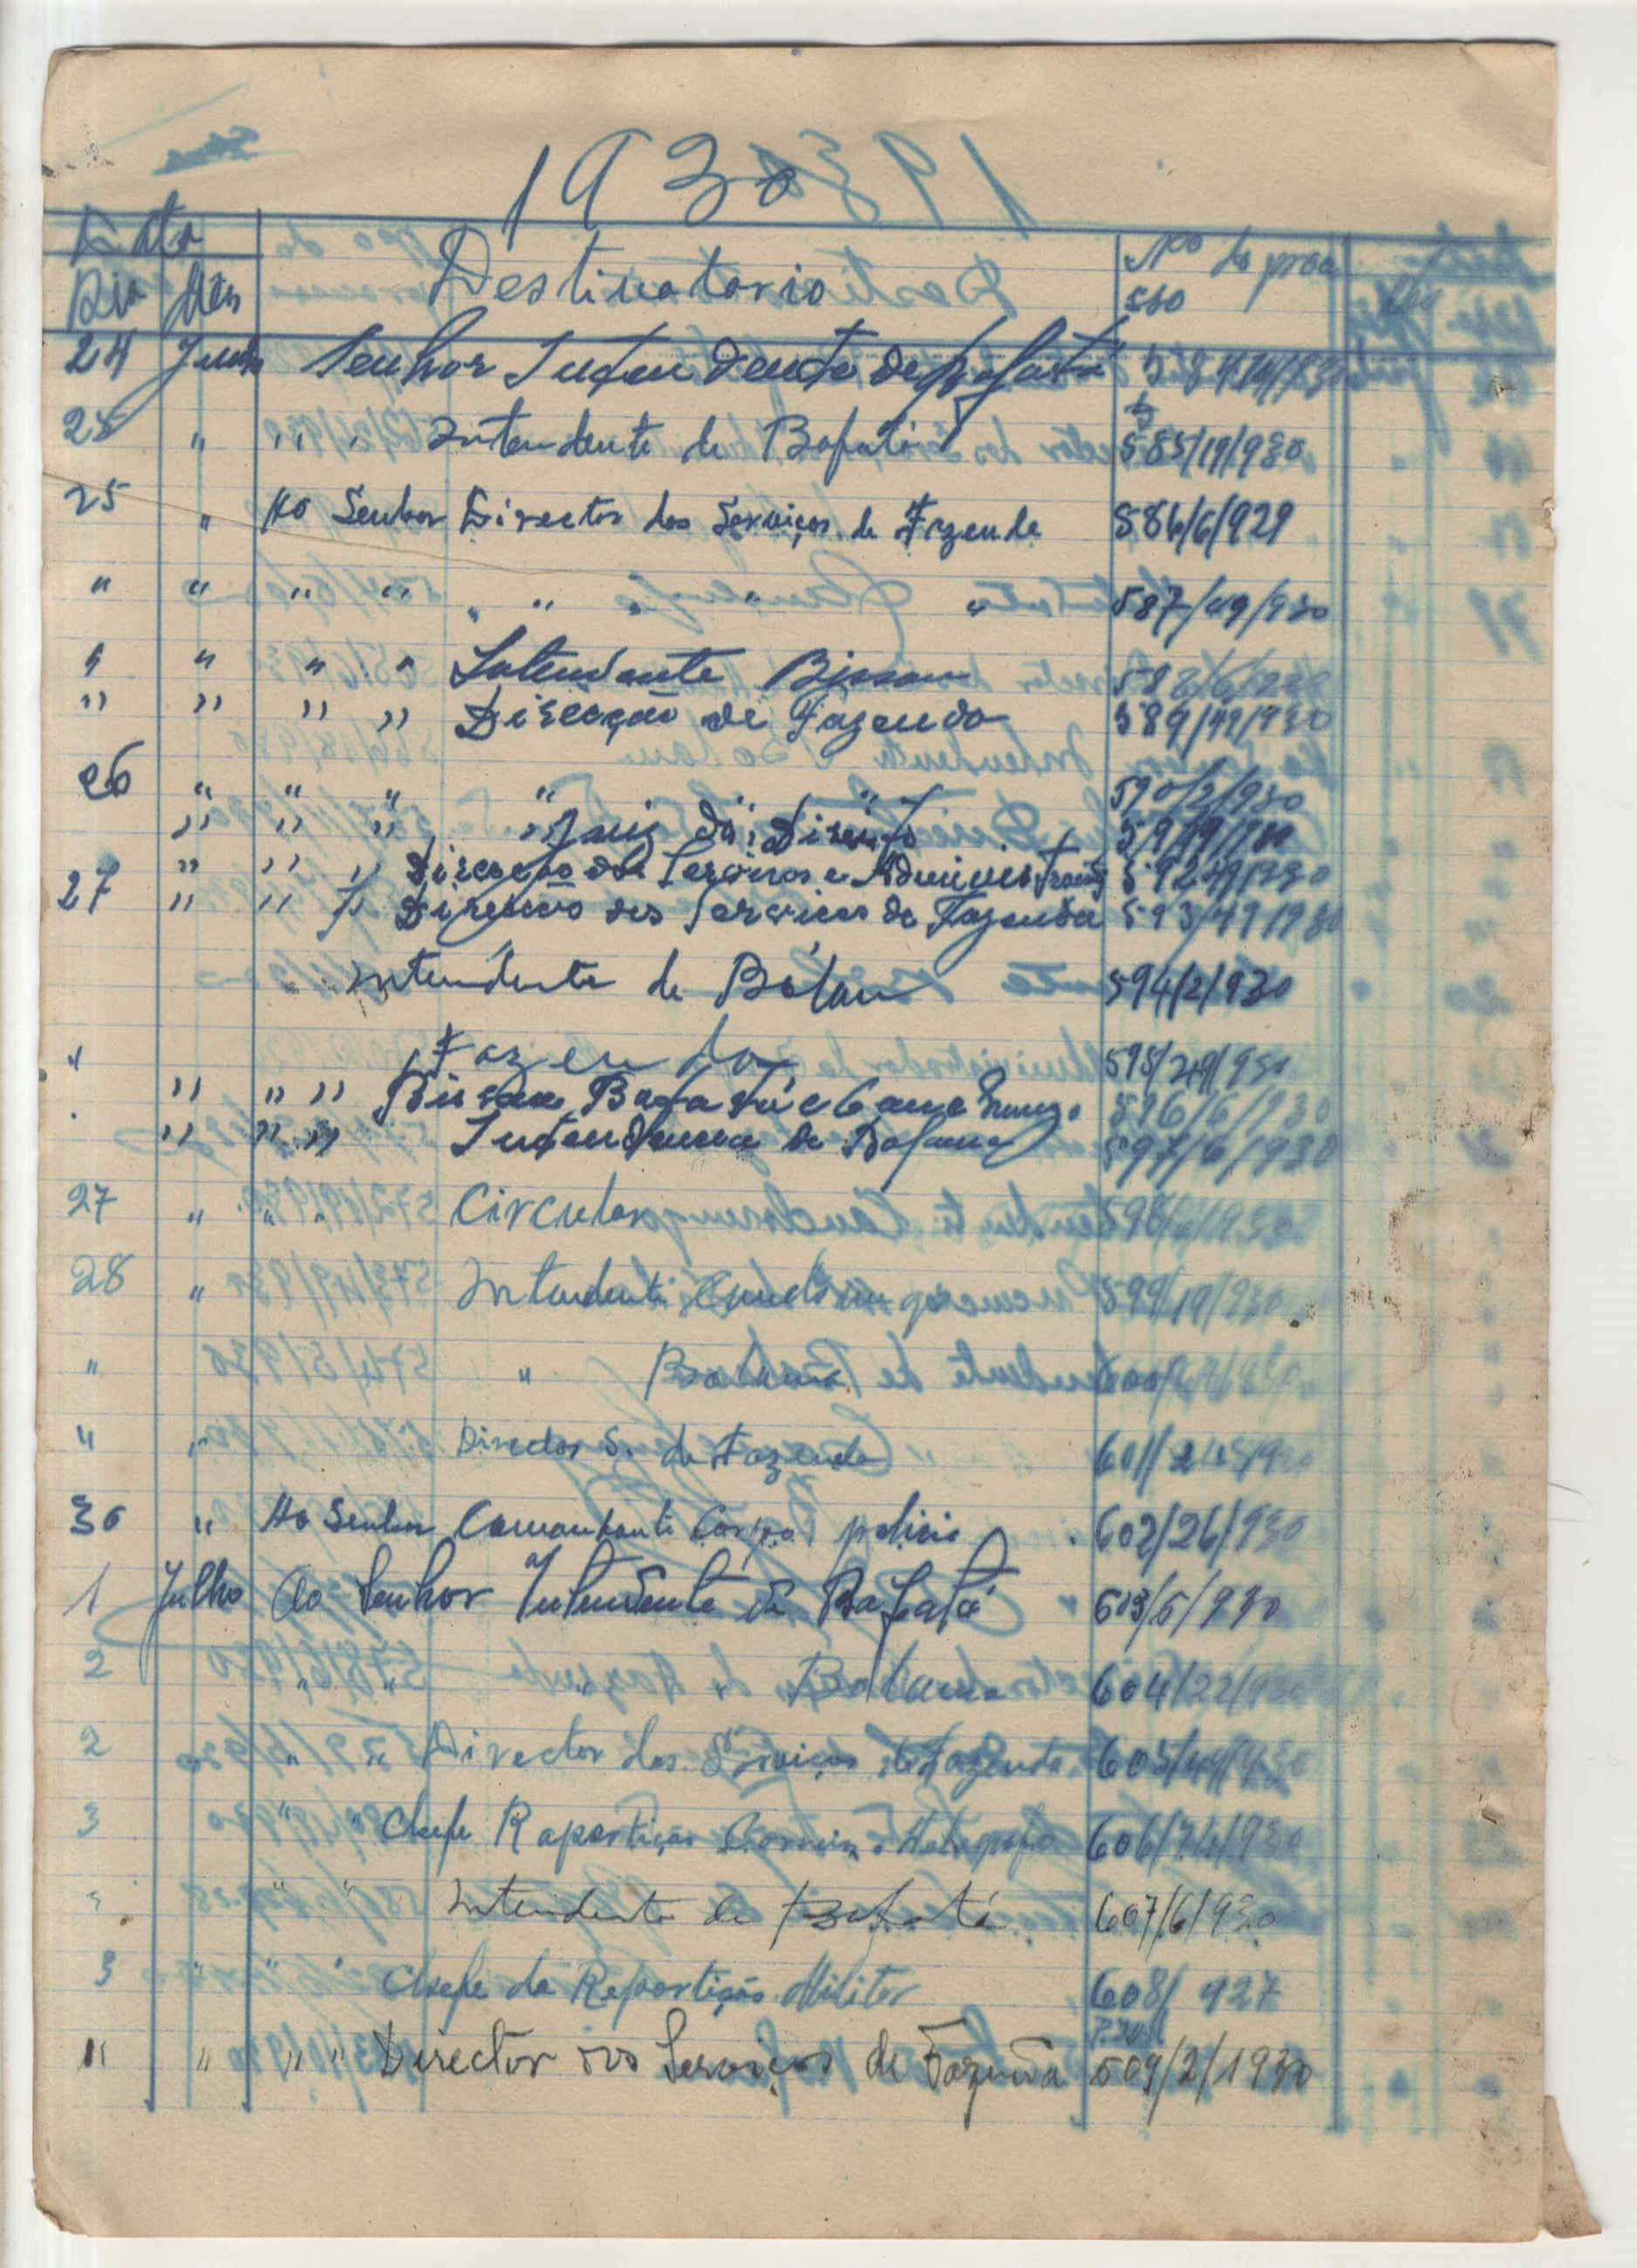 1930
Data
Dia Mês Destinatario Nº do proc
esso
24 Junho Senhor Intendente de Bafatá
25 " " " Intendente de Bafatá 585/19/930
25 " Ao Senhor Director dos Serviços de Fazenda 586/6/929
" " " " " " " " " 587/49/930
" " " " Intendente Bissau
" " " " Direcção de Fazenda 589/49/930
26 " " " " " " 590/2/930
" " " " Juiz da Direito
" " " Direcção dos Serviços e Administração
27 " " " Direcção dos Serviços de Fazenda 593/49/930
Intendente de Bolama 594/2/930
" Fazenda 595/49/930
" " " Bissau Bafatá e Canchungo 596/6/930
" " " Intendencia de Bolama 597/6/930
27 " " " Circular
28 " Intendente Canchungo 599/19/930
" " Bolama
" " Director S. de Fazenda
30 " Ao Senhor Comandante Corpo policia 602/26/930
1 Julho Ao Senhor Intendente de Bafatá 603/6/930
2 " " " Bolama 604/22/930
2 " " Director dos Serviços de Fazenda 605/49/930
3 " " Chefe Repartição Correios Telegrafo 606/74/930
" " " Intendente de Bafatá 607/6/930
3 " " " Chefe da Repartição Militar 608/ 927
" " " " Director dos Serviços de Fazenda 609/2/1930